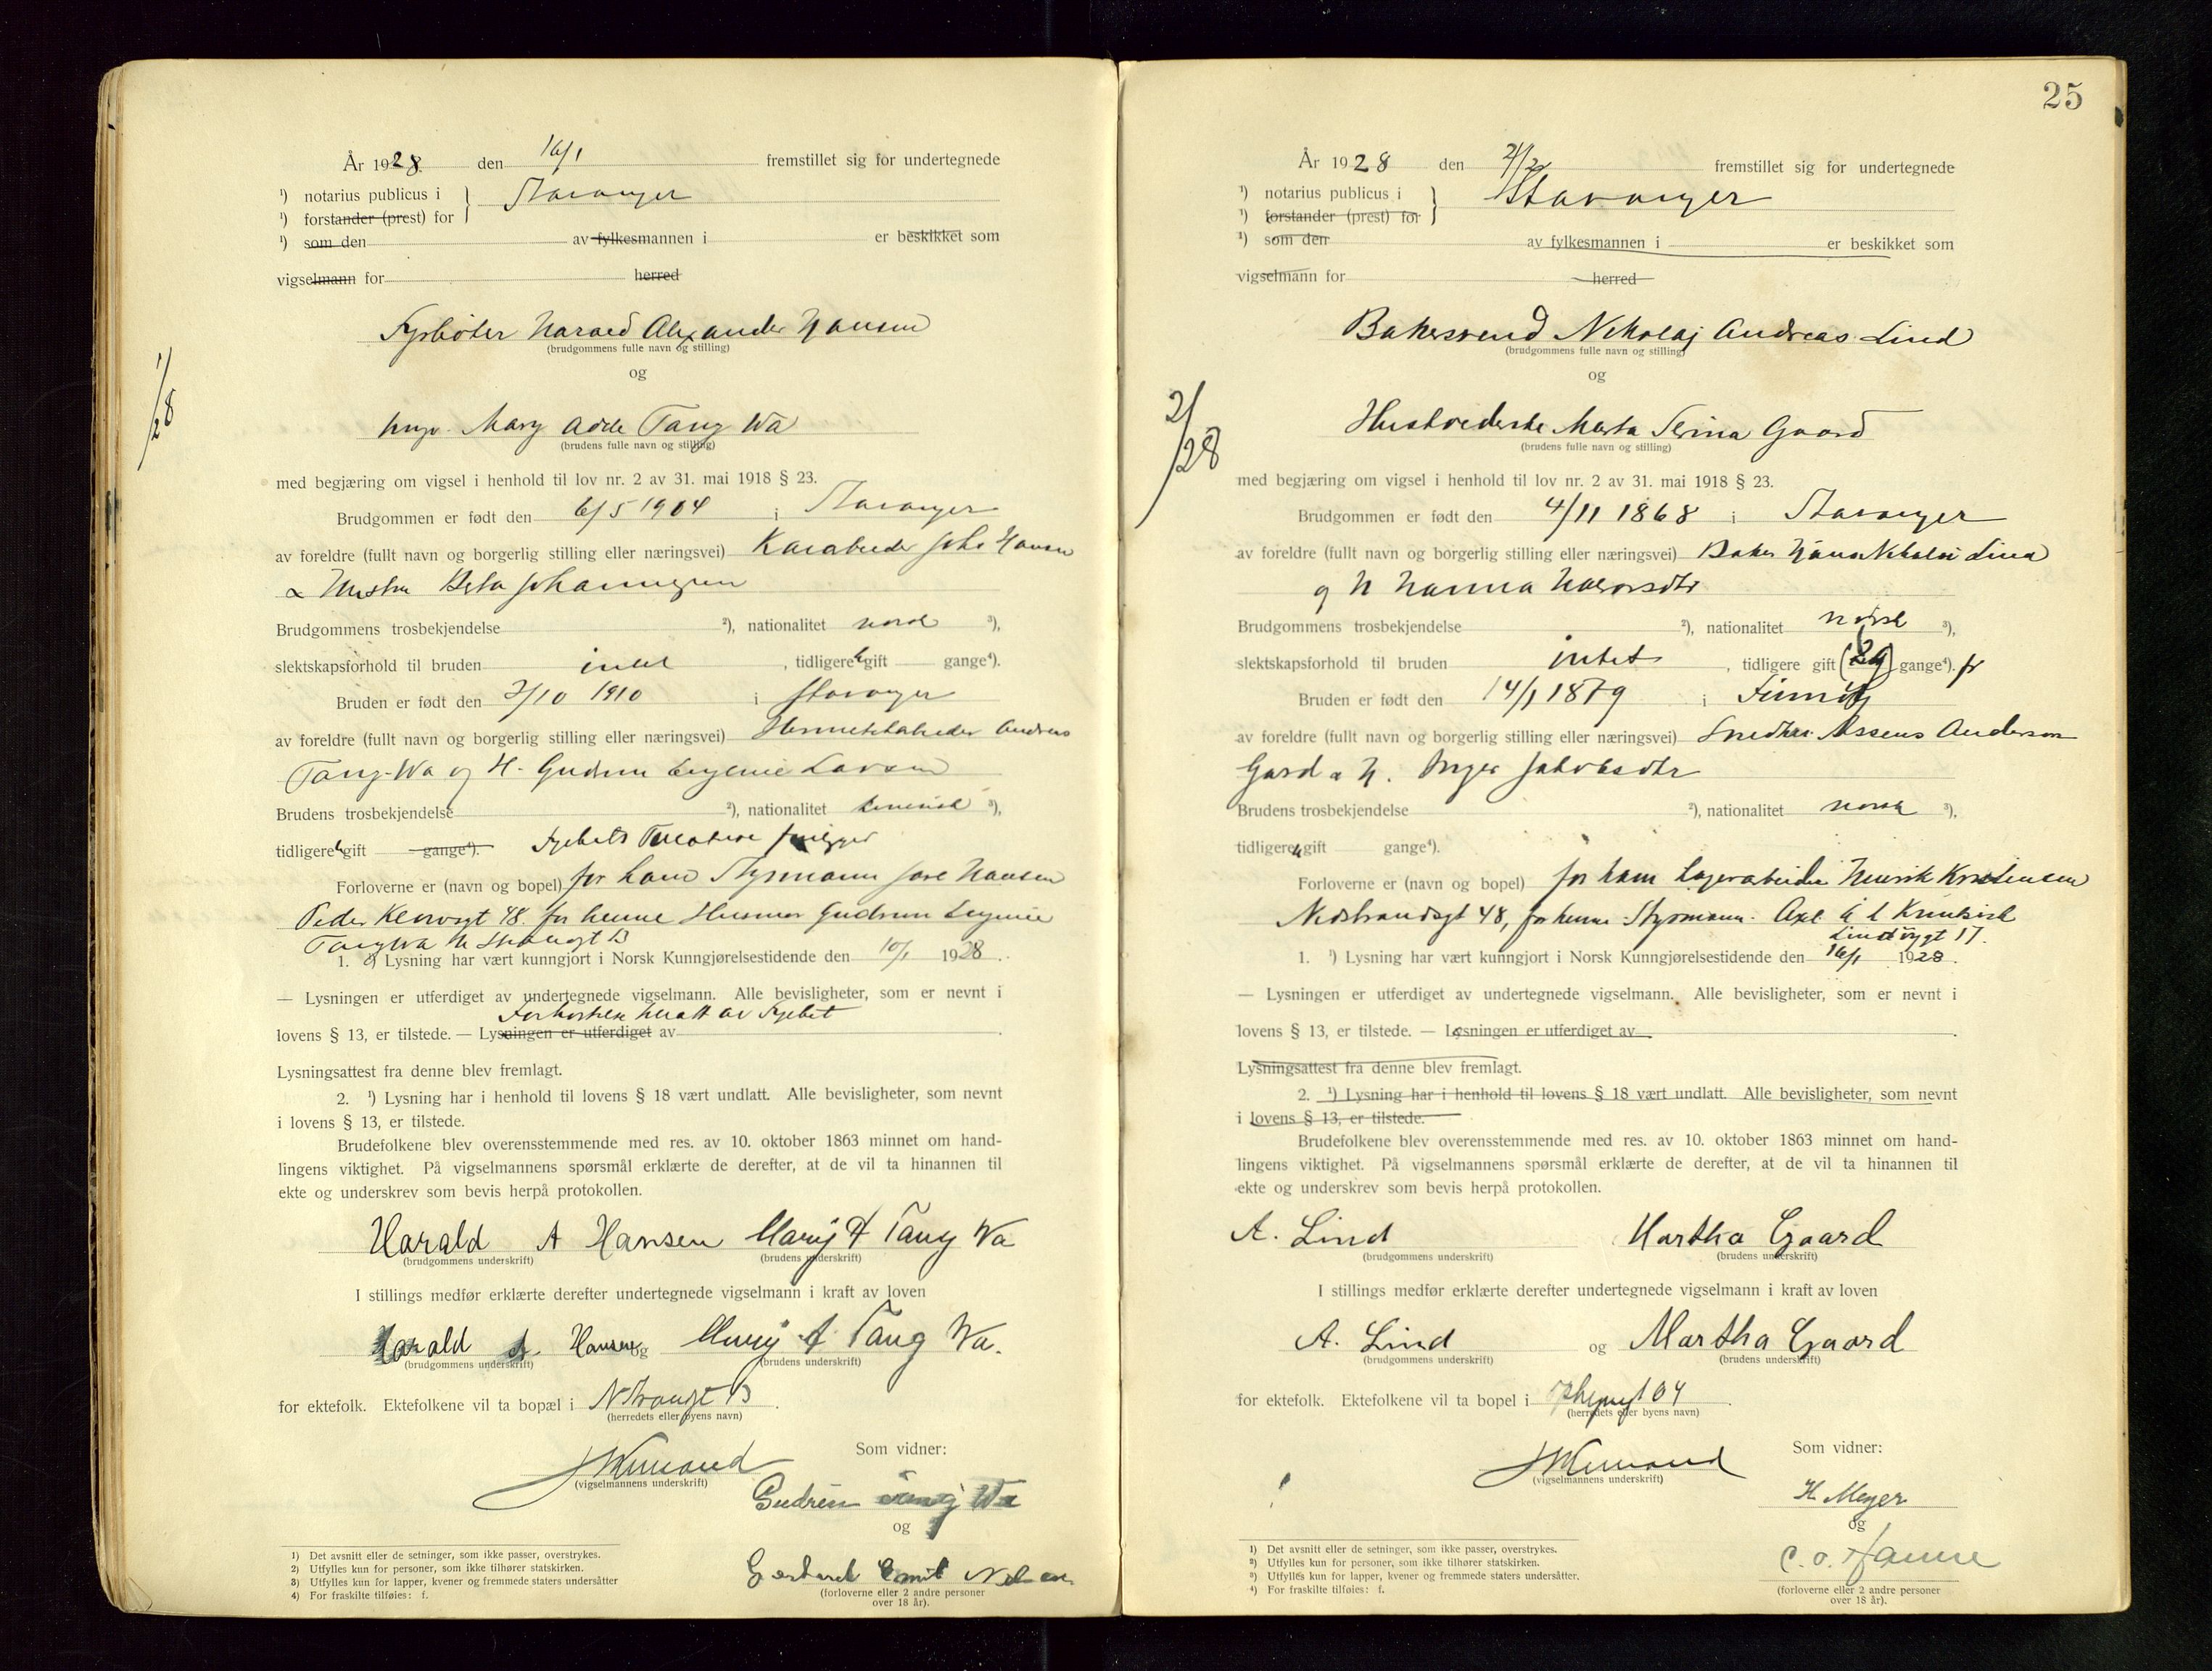 År 1928 den 16/1 fremstillet sig for undertegnede
¹) notarius publicus i } Stavanger
¹) forstander (prest) for
¹) som den av fylkesmannen i er beskikket som
vigselmann for herred
Fyrbøter Harald Alexander Hansen
(brudgommens fulle navn og stilling)
og
1/28
Mary Adele Tang Wa
(brudens fulle navn og stilling)
med begjæring om vigsel i henhold til lov nr. 2 av 31. mai 1918 § 23.
Brudgommen er født den 6/5 1904 i Stavanger
av foreldre (fullt navn og borgerlig stilling eller næringsvei) Hansen
& Hustru Johannesen
Brudgommens trosbekjendelse ²), nationalitet norsk ³),
slektskapsforhold til bruden intet , tidligere gift gange⁴).
Bruden er født den 7/10 1910 i Stavanger
av foreldre (fullt navn og borgerlig stilling eller næringsvei) Hermetikarbeider Andreas
Tang-Wa og H. Gudrun Eugenie Larsen
Brudens trosbekjendelse ²), nationalitet kinesisk ³),
tidligere gift gange⁴).
Forloverne er (navn og bopel) for ham Styrmann Hansen
Peder Klowsgt 48. for henne Husmor Gudrun Eugenie
Tang Wa N Strandgt 13
1. ¹) Lysning har vært kunngjort i Norsk Kunngjørelsestidende den 10/1 1928.
— Lysningen er utferdiget av undertegnede vigselmann. Alle bevisligheter, som er nevnt i
lovens § 13, er tilstede. — Lysningen er utferdiget av
Lysningsattest fra denne blev fremlagt.
2. ¹) Lysning har i henhold til lovens § 18 vært undlatt. Alle bevisligheter, som nevnt
i lovens § 13, er tilstede.
Brudefolkene blev overensstemmende med res. av 10. oktober 1863 minnet om hand-
lingens viktighet. På vigselmannens spørsmål erklærte de derefter, at de vil ta hinannen til
ekte og underskrev som bevis herpå protokollen.
Harald A Hansen Mary A Tang Wa
(brudgommens underskrift) (brudens underskrift)
I stillings medfør erklærte derefter undertegnede vigselmann i kraft av loven
Harald A. Hansen og Mary A Tang Wa.
(brudgommens underskrift) (brudens underskrift)
for ektefolk. Ektefolkene vil ta bopæl i N Strandgt 13
(herredets eller byens navn)
Som vidner:
(vigselmannens underskrift)
Gudrun Tang Wa
og
Gerhard Emil Nilsen
(forloverne eller 2 andre personer
over 18 år).
1) Det avsnitt eller de setninger, som ikke passer, overstrykes.
2) Utfylles kun for personer, som ikke tilhører statskirken.
3) Utfylles kun for lapper, kvener og fremmede staters undersåtter
4) For fraskilte tilføies: f.
25
År 1928 den 2/2 fremstillet sig for undertegnede
¹) notarius publicus i } Stavanger
¹) forstander (prest) for
¹) som den av fylkesmannen i er beskikket som
vigselmann for herred
Bakersvend Nikolaj Andreas Lind
(brudgommens fulle navn og stilling)
og
2/28
Husholderske Marta Serina Gaard
(brudens fulle navn og stilling)
med begjæring om vigsel i henhold til lov nr. 2 av 31. mai 1918 § 23.
Brudgommen er født den 4/11 1868 i Stavanger
av foreldre (fullt navn og borgerlig stilling eller næringsvei) Baker Hans Nikolai Lind
og H Hanna Halvorsdtr
Brudgommens trosbekjendelse ²), nationalitet norsk ³),
slektskapsforhold til bruden intet , tidligere gift gange⁴).
Bruden er født den 14/1 1879 i Finnøy
av foreldre (fullt navn og borgerlig stilling eller næringsvei) Snedker Assens Anderson
Gard & H. Inger Jakobsdtr
Brudens trosbekjendelse ²), nationalitet norsk ³),
tidligere gift gange⁴).
Forloverne er (navn og bopel) for ham Lagerarbeider Henrik Kristensen
Nedstrandsgt 48, for henne Styrmann Axel
Lindøygt 17.
1. ¹) Lysning har vært kunngjort i Norsk Kunngjørelsestidende den 16/1 1928.
— Lysningen er utferdiget av undertegnede vigselmann. Alle bevisligheter, som er nevnt i
lovens § 13, er tilstede. — Lysningen er utferdiget av
Lysningsattest fra denne blev fremlagt.
2. ¹) Lysning har i henhold til lovens § 18 vært undlatt. Alle bevisligheter, som nevnt
i lovens § 13, er tilstede.
Brudefolkene blev overensstemmende med res. av 10. oktober 1863 minnet om hand-
lingens viktighet. På vigselmannens spørsmål erklærte de derefter, at de vil ta hinannen til
ekte og underskrev som bevis herpå protokollen.
A. Lind Martha Gaard
(brudgommens underskrift) (brudens underskrift)
I stillings medfør erklærte derefter undertegnede vigselmann i kraft av loven
A. Lind og Martha Gaard
(brudgommens underskrift) (brudens underskrift)
for ektefolk. Ektefolkene vil ta bopel i
(herredets eller byens navn)
Som vidner:
(vigselmannens underskrift)
H. Meyer
og
C. O. Hanne
(forloverne eller 2 andre personer
over 18 år).
1) Det avsnitt eller de setninger, som ikke passer, overstrykes.
2) Utfylles kun for personer, som ikke tilhører statskirken.
3) Utfylles kun for lapper, kvener og fremmede staters undersåtter.
4) For fraskilte tilføies: f.